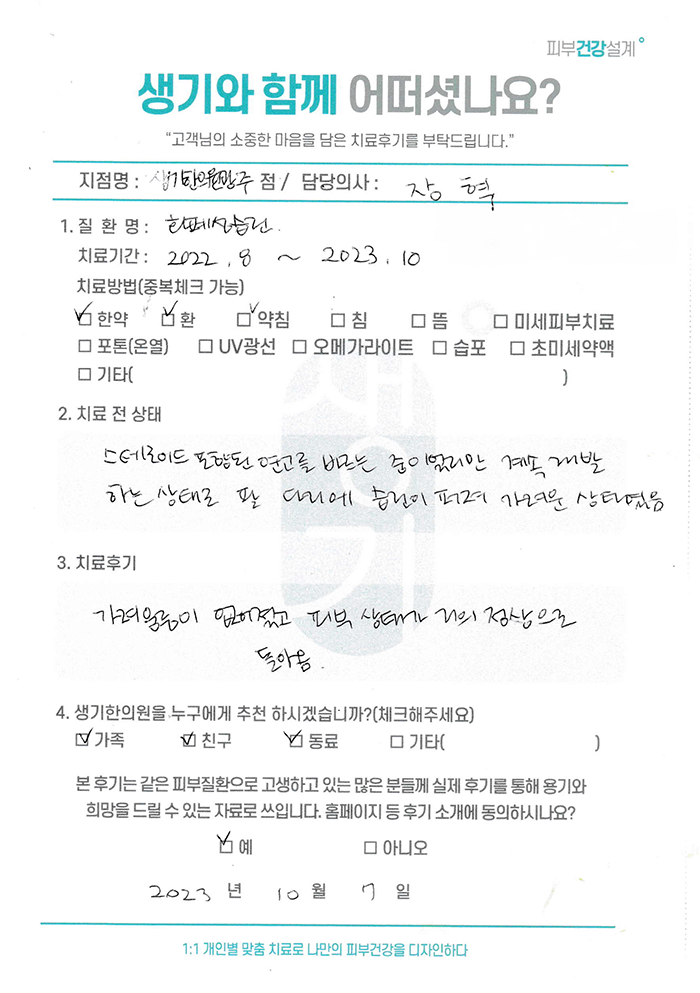 피부건강설계
생기와 함께 어떠셨나요?
"고객님의 소중한 마음을 담은 치료후기를 부탁드립니다."
지점명 : 생기한의원광주 점 / 담당의사 : 장 혁
1. 질 환 명 : 화폐상습진.
치료기간 : 2022. 8 ~ 2023. 10
치료방법(중복체크 가능)
☑ 한약 ☑ 환 ☑ 약침 □ 침 □ 뜸 □ 미세피부치료
□ 포톤(온열) □ UV광선 □ 오메가라이트 □ 습포 □ 초미세약액
□ 기타( )
2. 치료 전 상태
스테로이드 포함된 연고를 바르는 중이었지만 계속 재발
하는 상태로 팔 다리에 습진이 퍼져 가려운 상태였음
3. 치료후기
가려움증이 없어졌고 피부 상태가 거의 정상으로
돌아옴.
생기
4. 생기한의원을 누구에게 추천 하시겠습니까?(체크해주세요)
☑ 가족 ☑ 친구 ☑ 동료 □ 기타( )
본 후기는 같은 피부질환으로 고생하고 있는 많은 분들께 실제 후기를 통해 용기와
희망을 드릴 수 있는 자료로 쓰입니다. 홈페이지 등 후기 소개에 동의하시나요?
☑ 예 □ 아니오
2023 년 10 월 7 일
1:1 개인별 맞춤 치료로 나만의 피부건강을 디자인하다